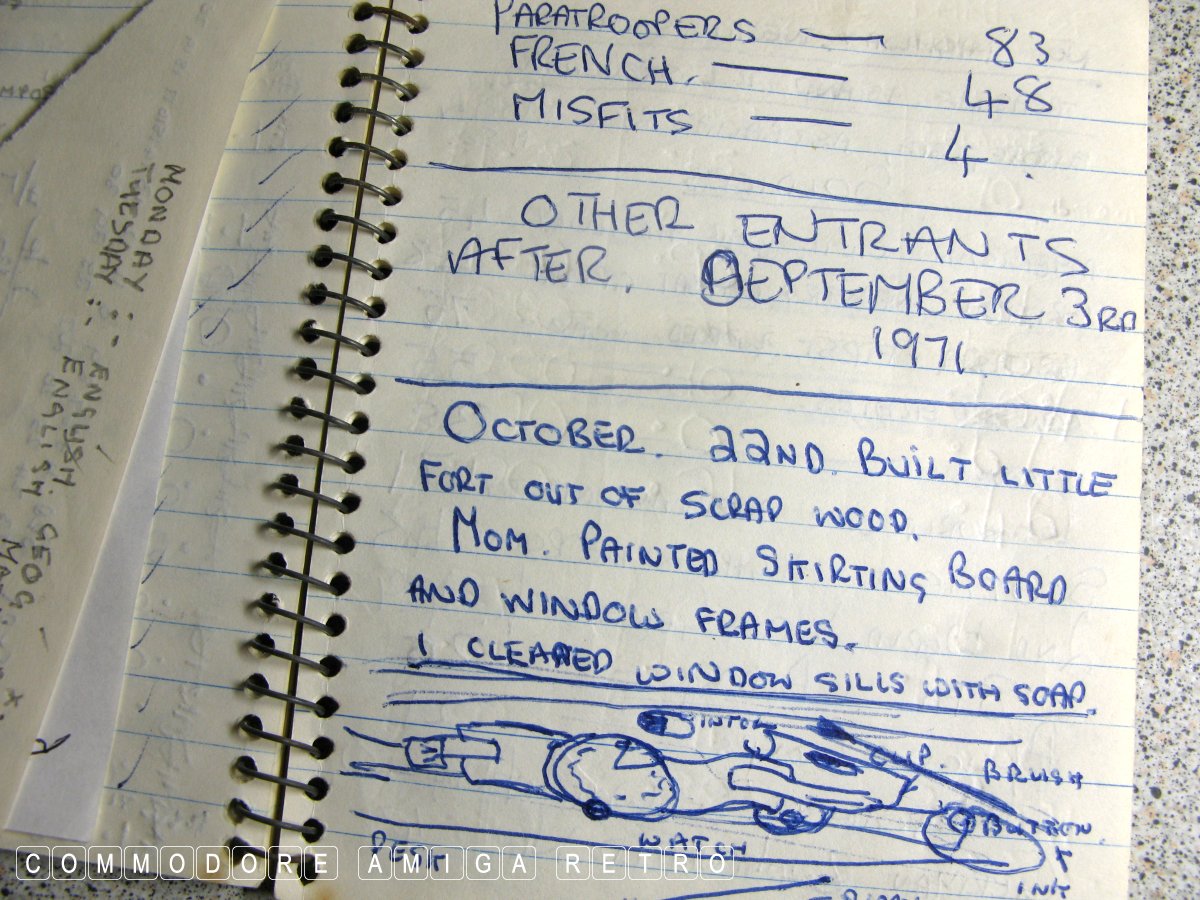 PARATROOPERS — 83
FRENCH. — 48
MISFITS — 4.
OTHER ENTRANTS
AFTER. SEPTEMBER 3RD
1971
OCTOBER. 22ND. BUILT LITTLE
FORT OUT OF SCRAP WOOD.
MOM. PAINTED SKIRTING BOARD
AND WINDOW FRAMES.
I CLEANED WINDOW SILLS WITH SOAP.
CLIP. BRUSH
BUTTON
WATCH
DESK
INK
MONDAY :- ENGLISH
TUESDAY :- ENGLISH GEOG
COMMODORE AMIGA RETRO